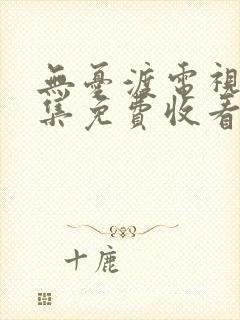 無憂渡電視
集免費收看
十鹿